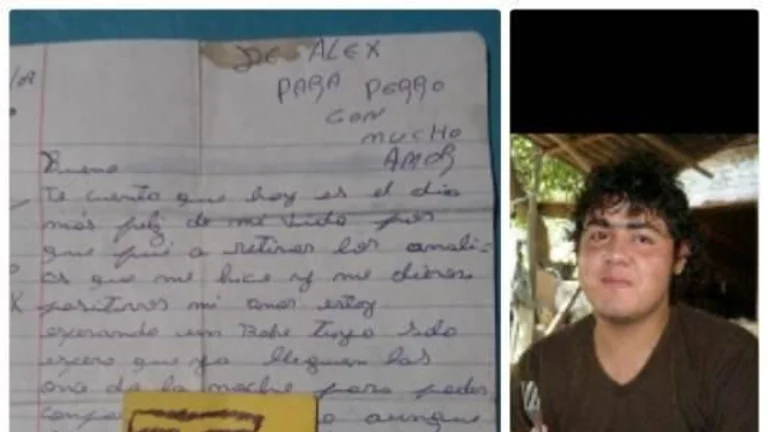 DE ALEX
PARA PERRO
CON
MUCHO
AMOR
Bueno
Te cuento que hoy es el dia
mas feliz de mi vida por
que fui a retirar los anali-
cis que me hice y me dieron
positivos mi amor estoy
esperando un Bebe tuyo solo
espero que ya lleguen las
once de la noche para poder
aunque